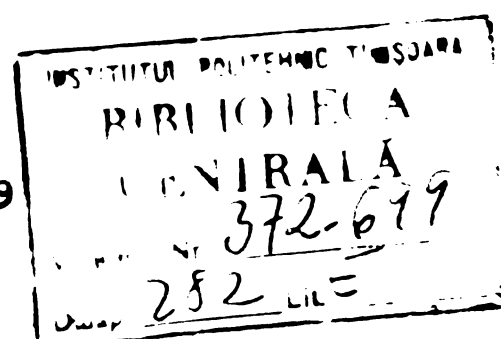 INSTITUTUL POLITEHNIC TIMIŞOARA
BIBLIOTECA
CENTRALĂ
9
Nr 372.699
Dulap 252 Lit =